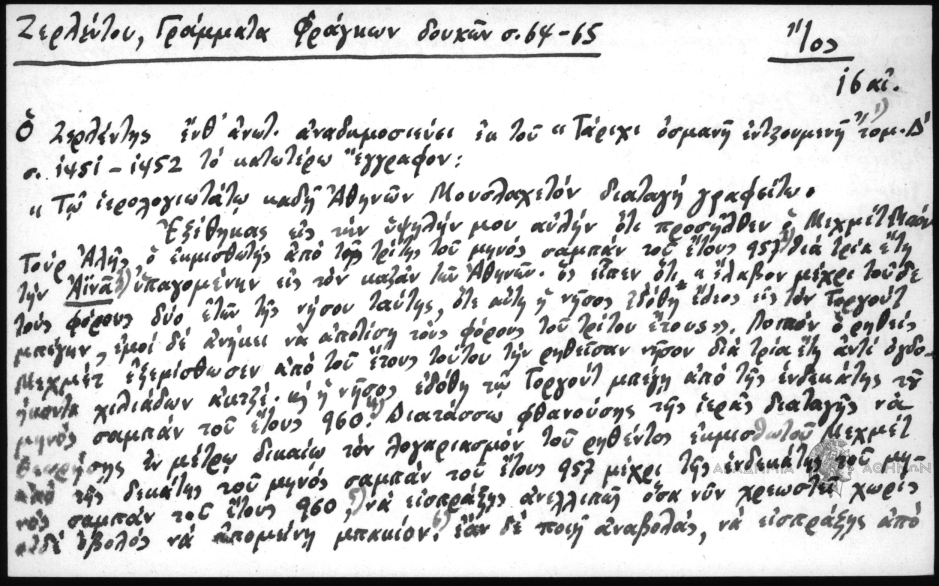 Ζερλέντου, Γράμματα Φράγκων δουκῶν σ. 64-65
Ἴος
16 αἰ.
Ὁ Ζερλέντης ἔνθ' ἀνωτ. ἀναδημοσιεύει ἐκ τοῦ "Τάριχι ὀσμανῆ ἐντζουμενῆ" τομ. Δ'
σ. 1451-1452 τό κατωτέρω ἔγγραφον:
"Τῷ ἱερολογιωτάτῳ καδῇ Ἀθηνῶν Μουσλαχετόν διαταγή γραφείτω.
Ἐξέθηκας εἰς τήν ὑψηλήν μου αὐλήν ὅτι προσῆλθεν ὁ Μεχμέτ
Τούρ Ἀλῆς ὁ ἐκμισθωτής ἀπό τῆς τρίτης τοῦ μηνός σαμπάν τοῦ ἔτους 957 διά τρία ἔτη
τήν Αἴνα ὑπαγομένην εἰς τόν καζάν τῶν Ἀθηνῶν. ὅς εἶπεν ὅτι "ἔλαβον μέχρι τοῦδε
τούς φόρους δύο ἐτῶν τῆς νήσου ταύτης, ὅτε αὐτή ἡ νῆσος ἐδόθη ἐδίος εἰς τόν Τοργούτ
μπέγην, ἐμοί δέ ἀνήκει νά ἀπολίσῃ τούς φόρους τοῦ τρίτου ἔτους". Λοιπόν ὁ ρηθείς
Μεχμέτ ἐξεμίσθωσεν ἀπό τοῦ ἔτους τούτου τήν ρηθεῖσαν νῆσον διά τρία ἔτη ἀντί ὀγδο-
ήκοντα χιλιάδων ἀκτζέ. κ' ἡ νῆσος ἐδόθη τῷ Τοργούτ μπέγῃ ἀπό τῆς ἑνδεκάτης τοῦ
μηνός σαμπάν τοῦ ἔτους 960. Διατάσσω φθανούσης τῆς ἱερᾶς διαταγῆς νά
θεωρήσῃς ἐν μέτρῳ δικαίῳ τόν λογαριασμόν τοῦ ρηθέντος ἐκμισθωτοῦ Μεχμέτ
ἀπό τῆς δεκάτης τοῦ μηνός σαμπάν τοῦ ἔτους 957 μέχρι τῆς ἑνδεκάτης τοῦ μη-
νός σαμπάν τοῦ ἔτους 960, νά εἰσπράξῃς ἀνελλιπῆ ὅσα νῦν χρεωστεῖ χωρίς
οὐδέ ὀβολός νά ἀπομείνῃ μπακίον. ἐάν δέ ποιῇ ἀναβολάς, νά εἰσπράξῃς ἀπό
ΑΚΑΔΗΜΙΑ ΑΘΗΝΩΝ